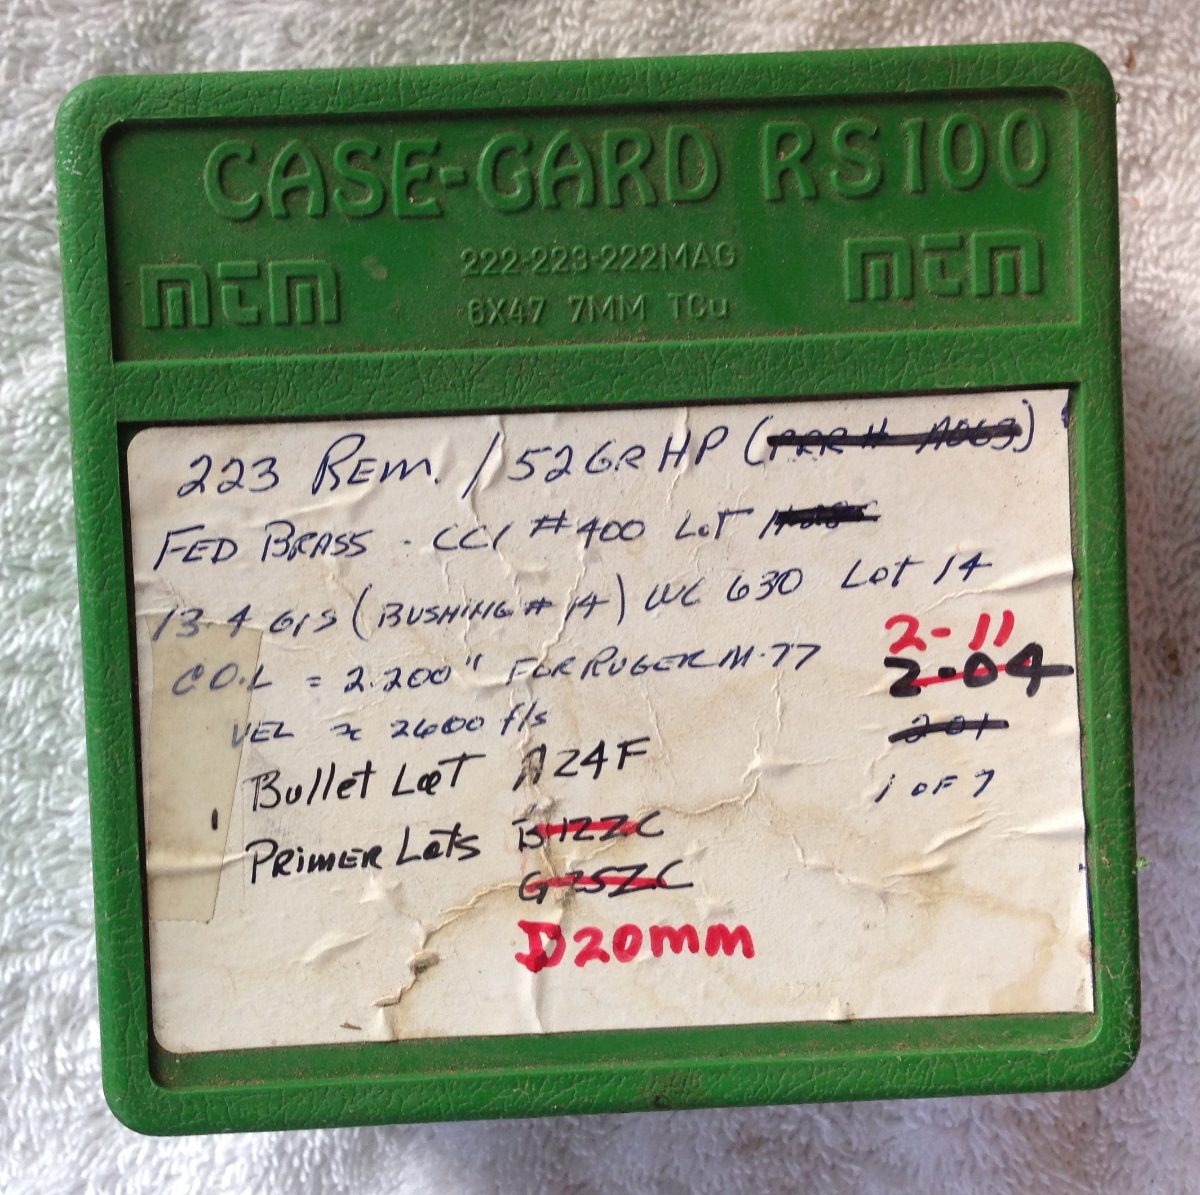 CASE-GARD RS100
MTM 222-223-222MAG MTM
6X47 7MM TCU
223 REM. / 52GR HP (PRR# A063)
FED BRASS - CCI #400 LOT
13.4 GRS (BUSHING # 14) WC 630 LOT 14
2-11
C.O.L = 2.200" FOR RUGER M-77 2-04
VEL ≈ 2600 f/s 2-01
Bullet Lot A24F 1 OF 7
PRIMER Lots B12ZC
G25ZC
D20MM